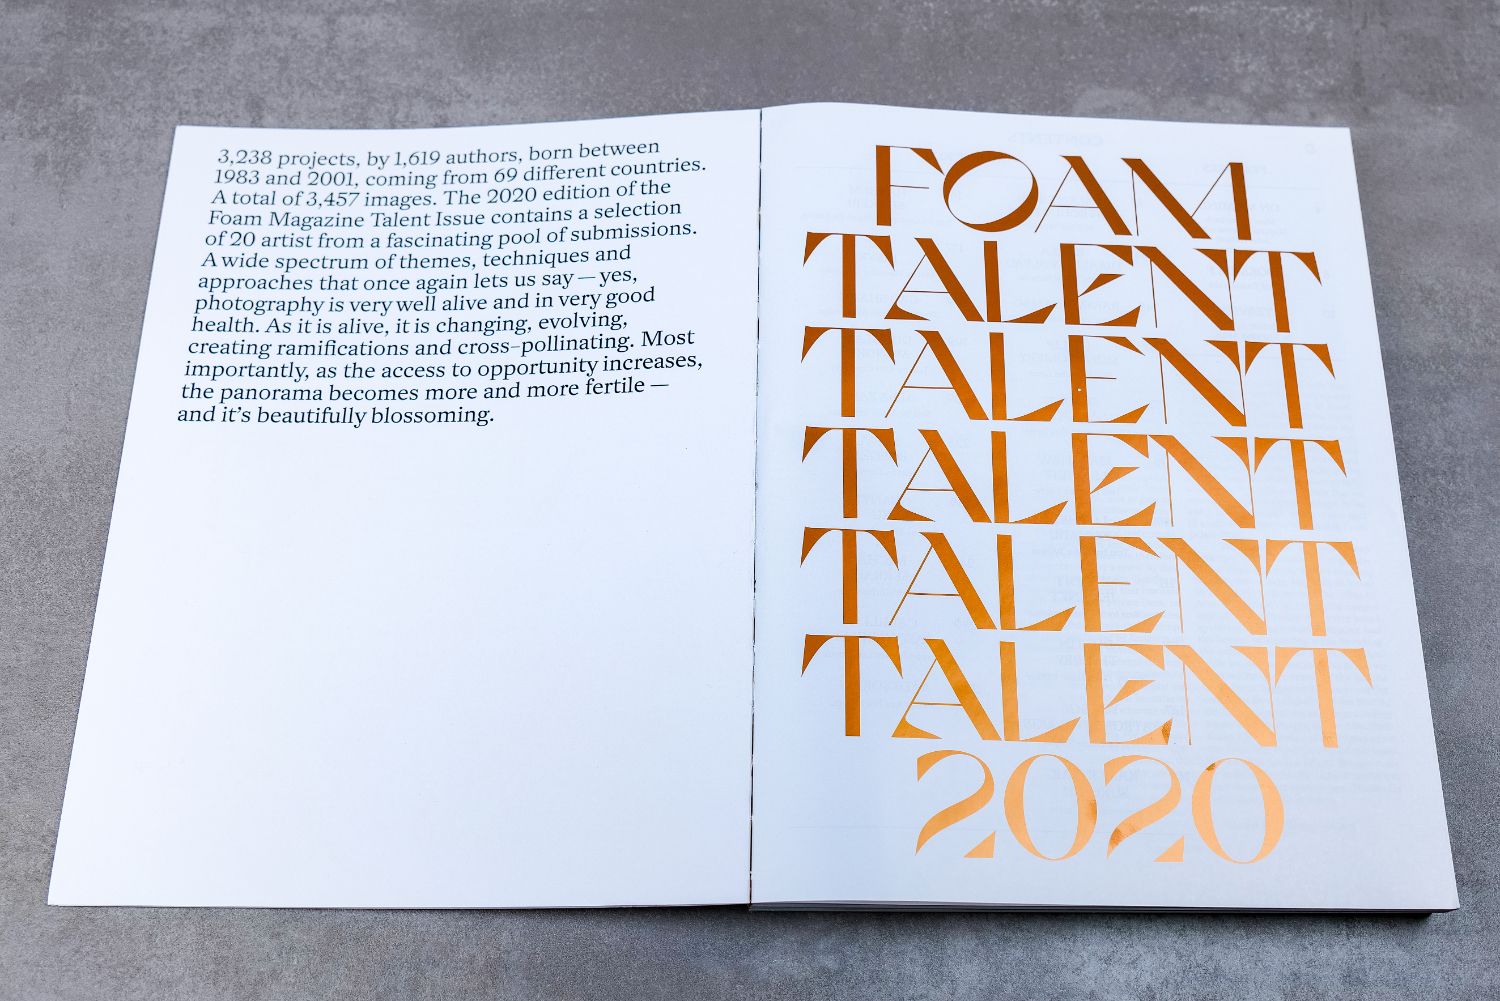 3,238 projects, by 1,619 authors, born between
1983 and 2001, coming from 69 different countries.
A total of 3,457 images. The 2020 edition of the
Foam Magazine Talent Issue contains a selection
of 20 artist from a fascinating pool of submissions.
A wide spectrum of themes, techniques and
approaches that once again lets us say — yes,
photography is very well alive and in very good
health. As it is alive, it is changing, evolving,
creating ramifications and cross–pollinating. Most
importantly, as the access to opportunity increases,
the panorama becomes more and more fertile —
and it's beautifully blossoming.
FOAM
TALENT
TALENT
TALENT
TALENT
TALENT
2020